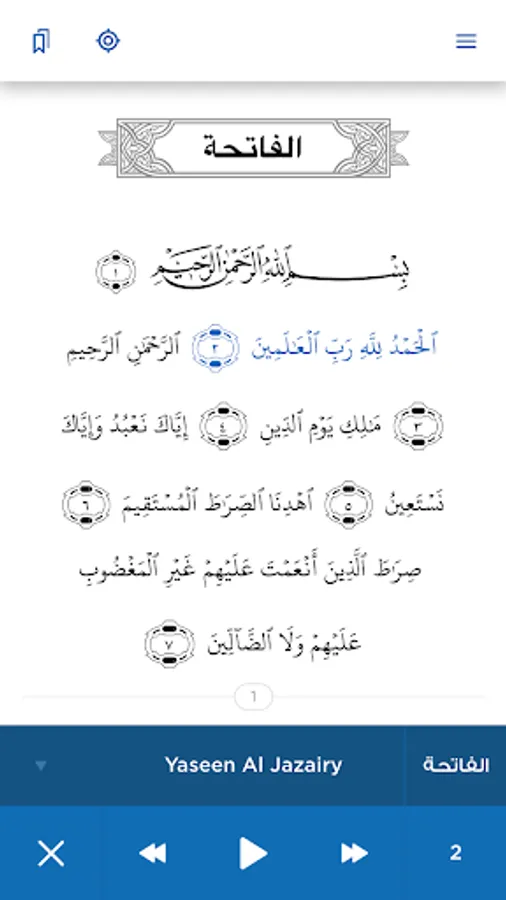 الفاتحة
بِسْمِ اللَّهِ الرَّحْمَٰنِ الرَّحِيمِ ١
الْحَمْدُ لِلَّهِ رَبِّ الْعَٰلَمِينَ ٢ الرَّحْمَٰنِ الرَّحِيمِ
٣ مَٰلِكِ يَوْمِ الدِّينِ ٤ إِيَّاكَ نَعْبُدُ وَإِيَّاكَ
نَسْتَعِينُ ٥ اهْدِنَا الصِّرَٰطَ الْمُسْتَقِيمَ ٦
صِرَٰطَ الَّذِينَ أَنْعَمْتَ عَلَيْهِمْ غَيْرِ الْمَغْضُوبِ
عَلَيْهِمْ وَلَا الضَّآلِّينَ ٧
1
Yaseen Al Jazairy الفاتحة
2